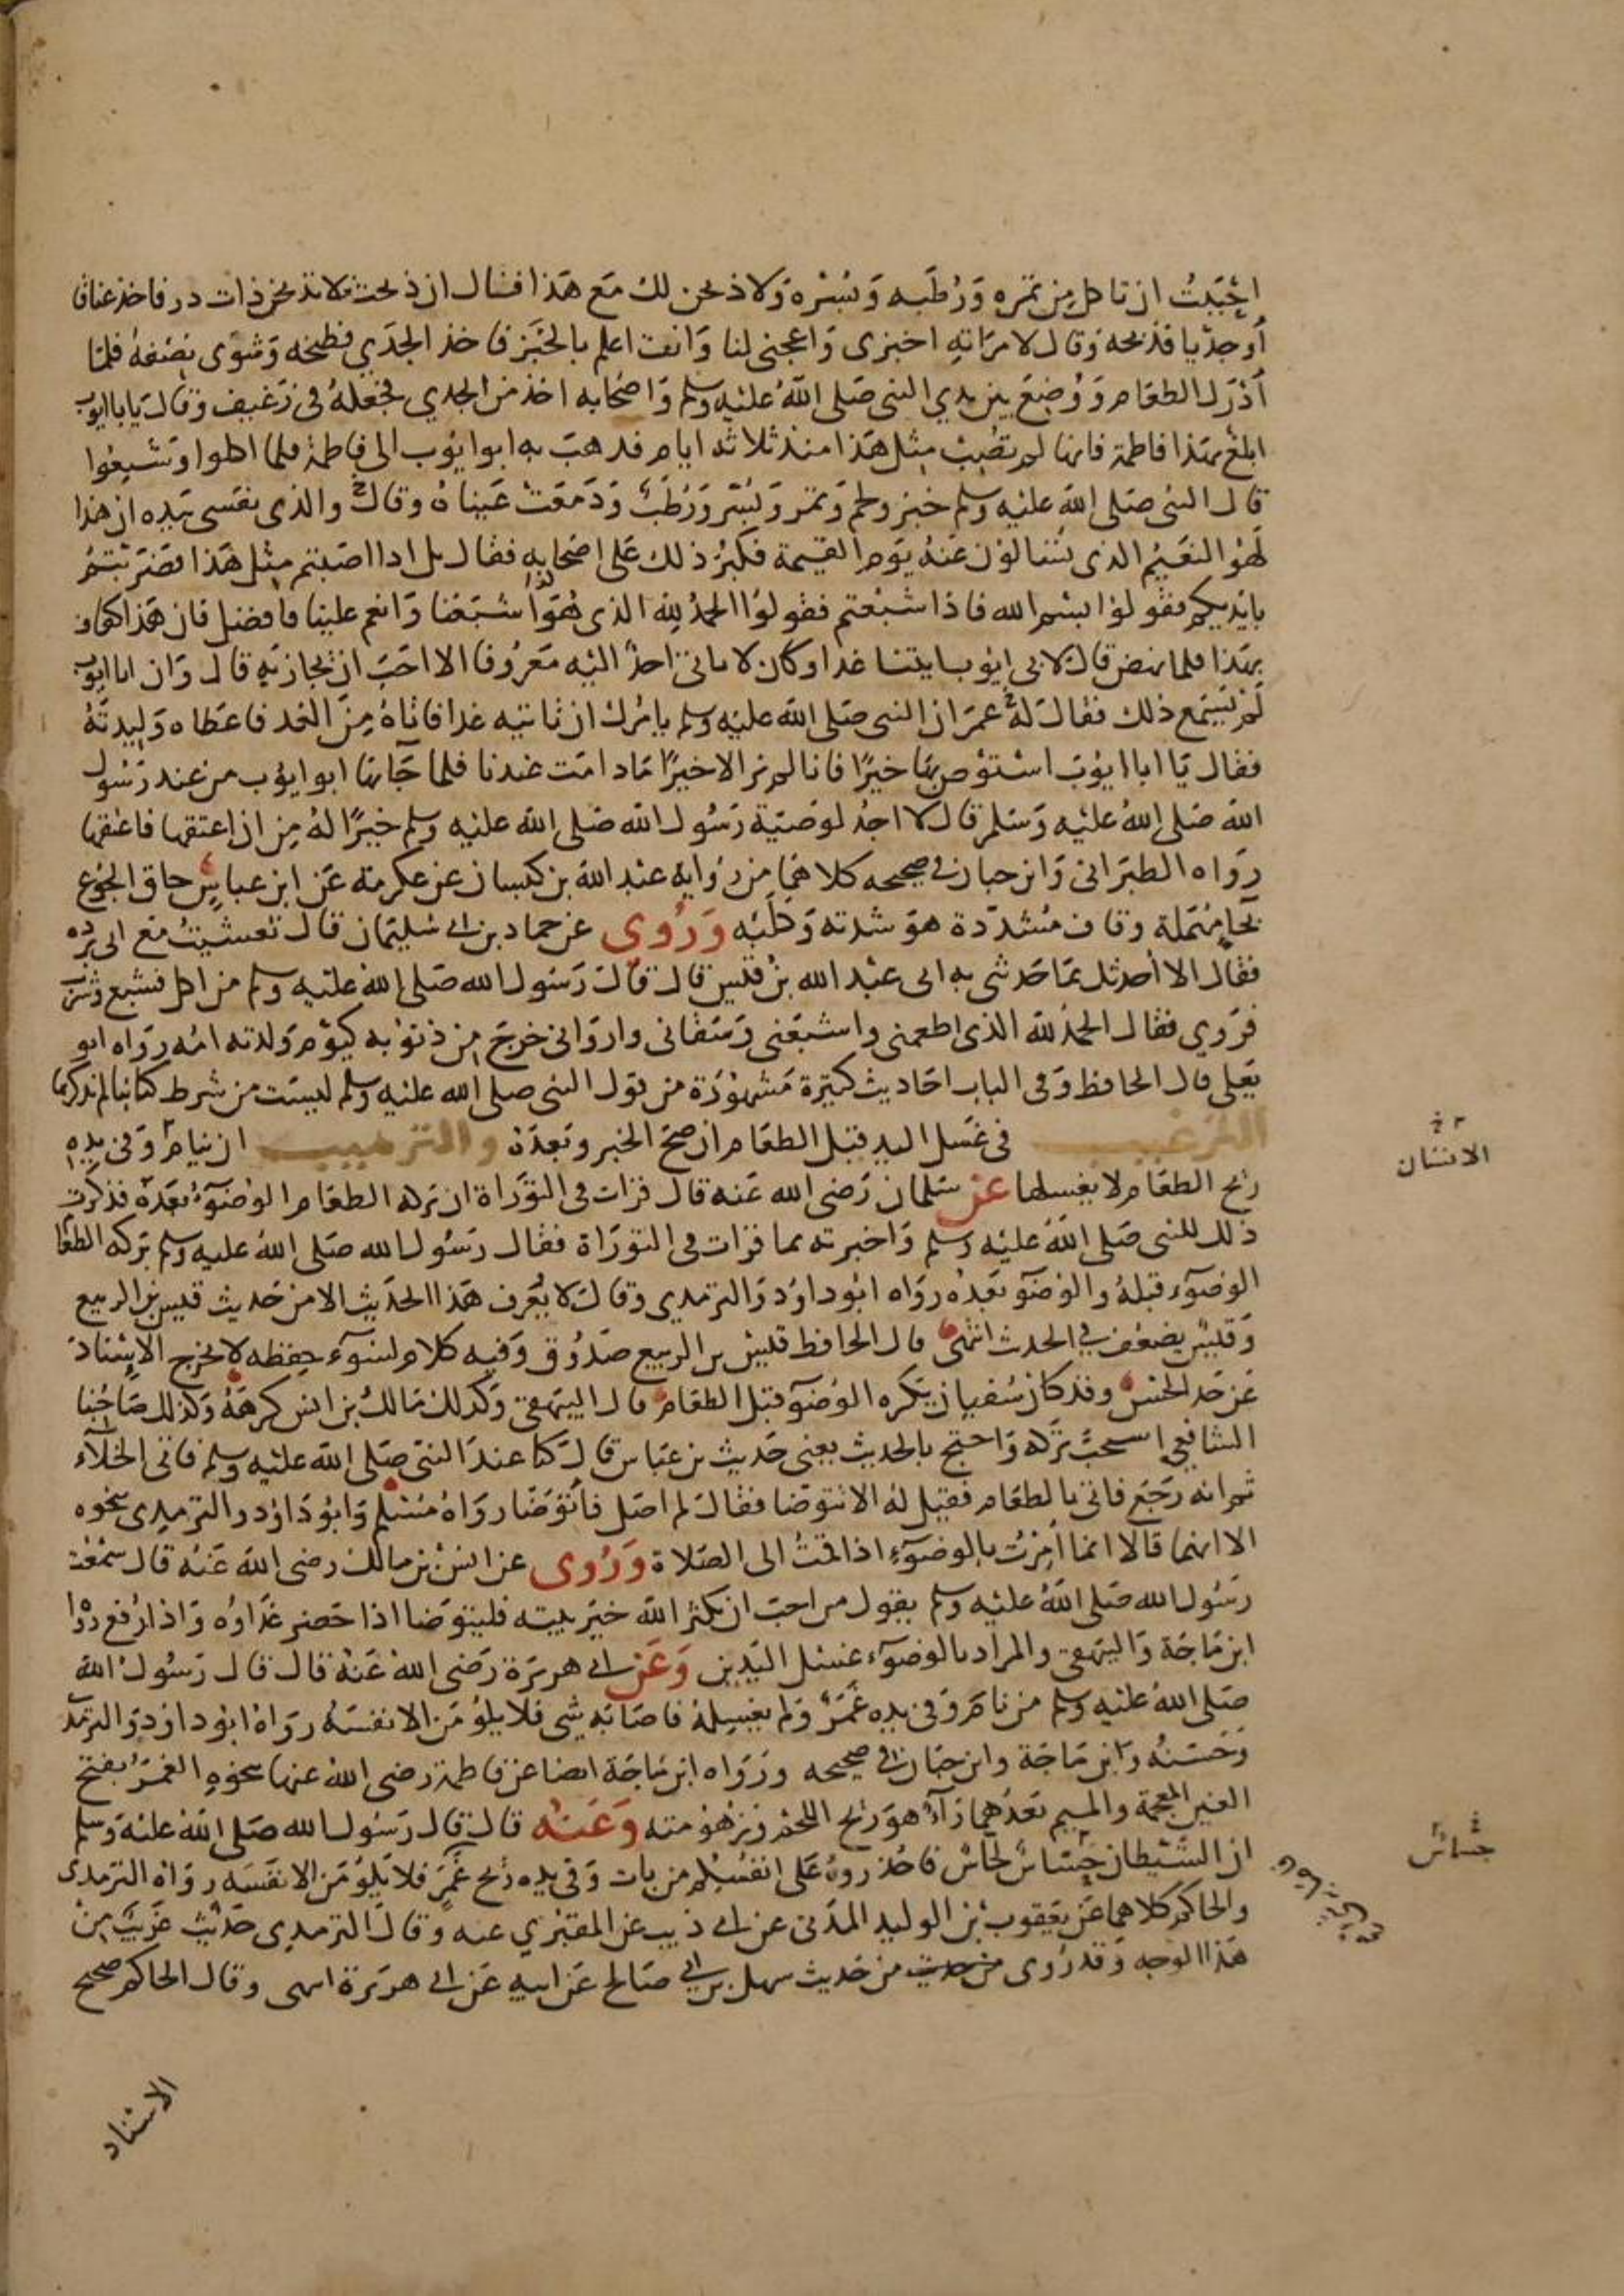 احببت ان تاكل من تمره ورطبه وبسره ولاذبحن لك مع هذا فقال ان ذبحت فلا تذبحن ذات در فاخذ عناقا
أو جديا فذبحه وقال لامراته اخبزى واعجنى لنا وانت اعلم بالخبز فاخذ الجدي فطبخه وشوى نصفه فلما
أدرك الطعام ووضع بين يدي النبى صلى الله عليه وسلم واصحابه اخذ من الجدي فجعله فى رغيف وقال يابا ايوب
ابلغ بهذا فاطمة فانها لم تصب مثل هذا منذ ثلاثة ايام فدهب به ابوا يوب الى فاطمة فلما اكلوا وشبعوا
قال النبى صلى الله عليه وسلم خبز ولحم وتمر وبسر ورطب ودمعت عيناه وقال والذى نفسى بيده ان هذا
لهو النعيم الذى تسالون عنه يوم القيمة فكبر ذلك على اصحابه فقال بل اذا اصبتم مثل هذا فضربتم
بايديكم فقولوا بسم الله فاذا شبعتم فقولوا الحمد لله الذى هوا شبعنا وانعم علينا فافضل فان هذا كفاف
بهذا فلما نهض قال لابى ايوب ايتنا غدا وكان لا ياتى احد اليه معروفا الا احب ان يجازيه قال وان ابا ايوب
لم يسمع ذلك فقال له عمر ان النبى صلى الله عليه وسلم يامرك ان تاتيه غدا فاتاه من الغد فاعطاه وليدته
فقال يا ابا ايوب استوص بها خيرا فانا لم نر الا خيرا مادامت عندنا فلما جا بها ابو ايوب من عند رسول
الله صلى الله عليه وسلم قال لا اجد لوصية رسول الله صلى الله عليه وسلم خيرا له من ان اعتقها فاعتقها
رواه الطبرانى وابن حبان في صحيحه كلاهما من رواية عبد الله بن كيسان عن عكرمة عن ابن عباس حاق الجوع
بحا مهملة وقاف مشددة هو شدته وكلبه وروي عن حماد بن ابي سليمان قال تعشيت مع ابى برده
فقال الا أحدثك بما حدثنى به ابى عبد الله بن قيس قال قال رسول الله صلى الله عليه وسلم من اكل فشبع وشرب
فروي فقال الحمد لله الذى اطعمنى واشبعنى وسقانى واروانى خرج من ذنوبه كيوم ولدته امه رواه ابو
يعلى قال الحافظ وفى الباب احاديث كثيرة مشهورة من قول النبى صلى الله عليه وسلم ليست من شرط كتابنا لم نذكرها
الترغيب فى غسل اليد قبل الطعام ان صح الخبر وبعده والترهيب ان ينام وفى يده
ريح الطعام لا يغسلها عن سلمان رضى الله عنه قال قرات فى التوراة ان بركة الطعام الوضوء بعده فذكرت
ذلك للنبى صلى الله عليه وسلم واخبرته بما قرات فى التوراة فقال رسول الله صلى الله عليه وسلم بركة الطعا
الوضوء قبله والوضو بعده رواه ابو داود والترمدى وقال لا يعرف هذا الحديث الا من حديث قيس بن الربيع
وقيس يضعف في الحدث انتهى قال الحافظ قيس بن الربيع صدوق وفيه كلام لسوء حفظه لا يخرج الاسناد
عن حد الحسن وقد كان سفيان يكره الوضو قبل الطعام قال البيهقى وكدلك مالك بن انس كرهه وكذلك صاحبنا
الشافعي استحب تركه واحتج بالحديث يعنى حديث بن عباس قال كنا عند النبى صلى الله عليه وسلم فاتى الخلاء
ثم انه رجع فاتى بالطعام فقيل له الا تتوضا فقال لم اصل فأتوضا رواه مسلم وابو داود والترمدى بنحوه
الا انهما قالا انما امرت بالوضوء اذا قمت الى الصلاة وروى عن انس بن مالك رضى الله عنه قال سمعت
رسول الله صلى الله عليه وسلم يقول من احب ان يكثر الله خير بيته فليتوضا اذا حضر غداوه واذا رفع رواه
ابن ماجة والبيهقى والمراد بالوضوء غسل اليدين وعن ابي هريرة رضى الله عنه قال قال رسول الله
صلى الله عليه وسلم من نام وفى يده غمر ولم يغسله فاصابه شى فلا يلومن الا نفسه رواه ابو داود والترمذ
وحسنه وابن ماجة وابن حبان في صحيحه ورواه ابن ماجة ايضا عن فاطمة رضى الله عنها بنحوه الغمر بفتح
الغين المعجمة والميم بعدهما راء هو ريح اللحم وزهومته وعنه قال قال رسول الله صلى الله عليه وسلم
ان الشيطان حساس لحاس فاحذروه على انفسكم من بات وفى يده ريح غمر فلا يلومن الا نفسه رواه الترمدى
والحاكم كلاهما عن يعقوب بن الوليد المدنى عن ابي ذيب عن المقبري عنه وقال الترمدي حديث غريب من
هذا الوجه وقد روى من حديث من حديث سهل بن ابي صالح عن ابيه عن ابي هريرة انتهى وقال الحاكم صحيح
الانسان
جساس
الاسناد